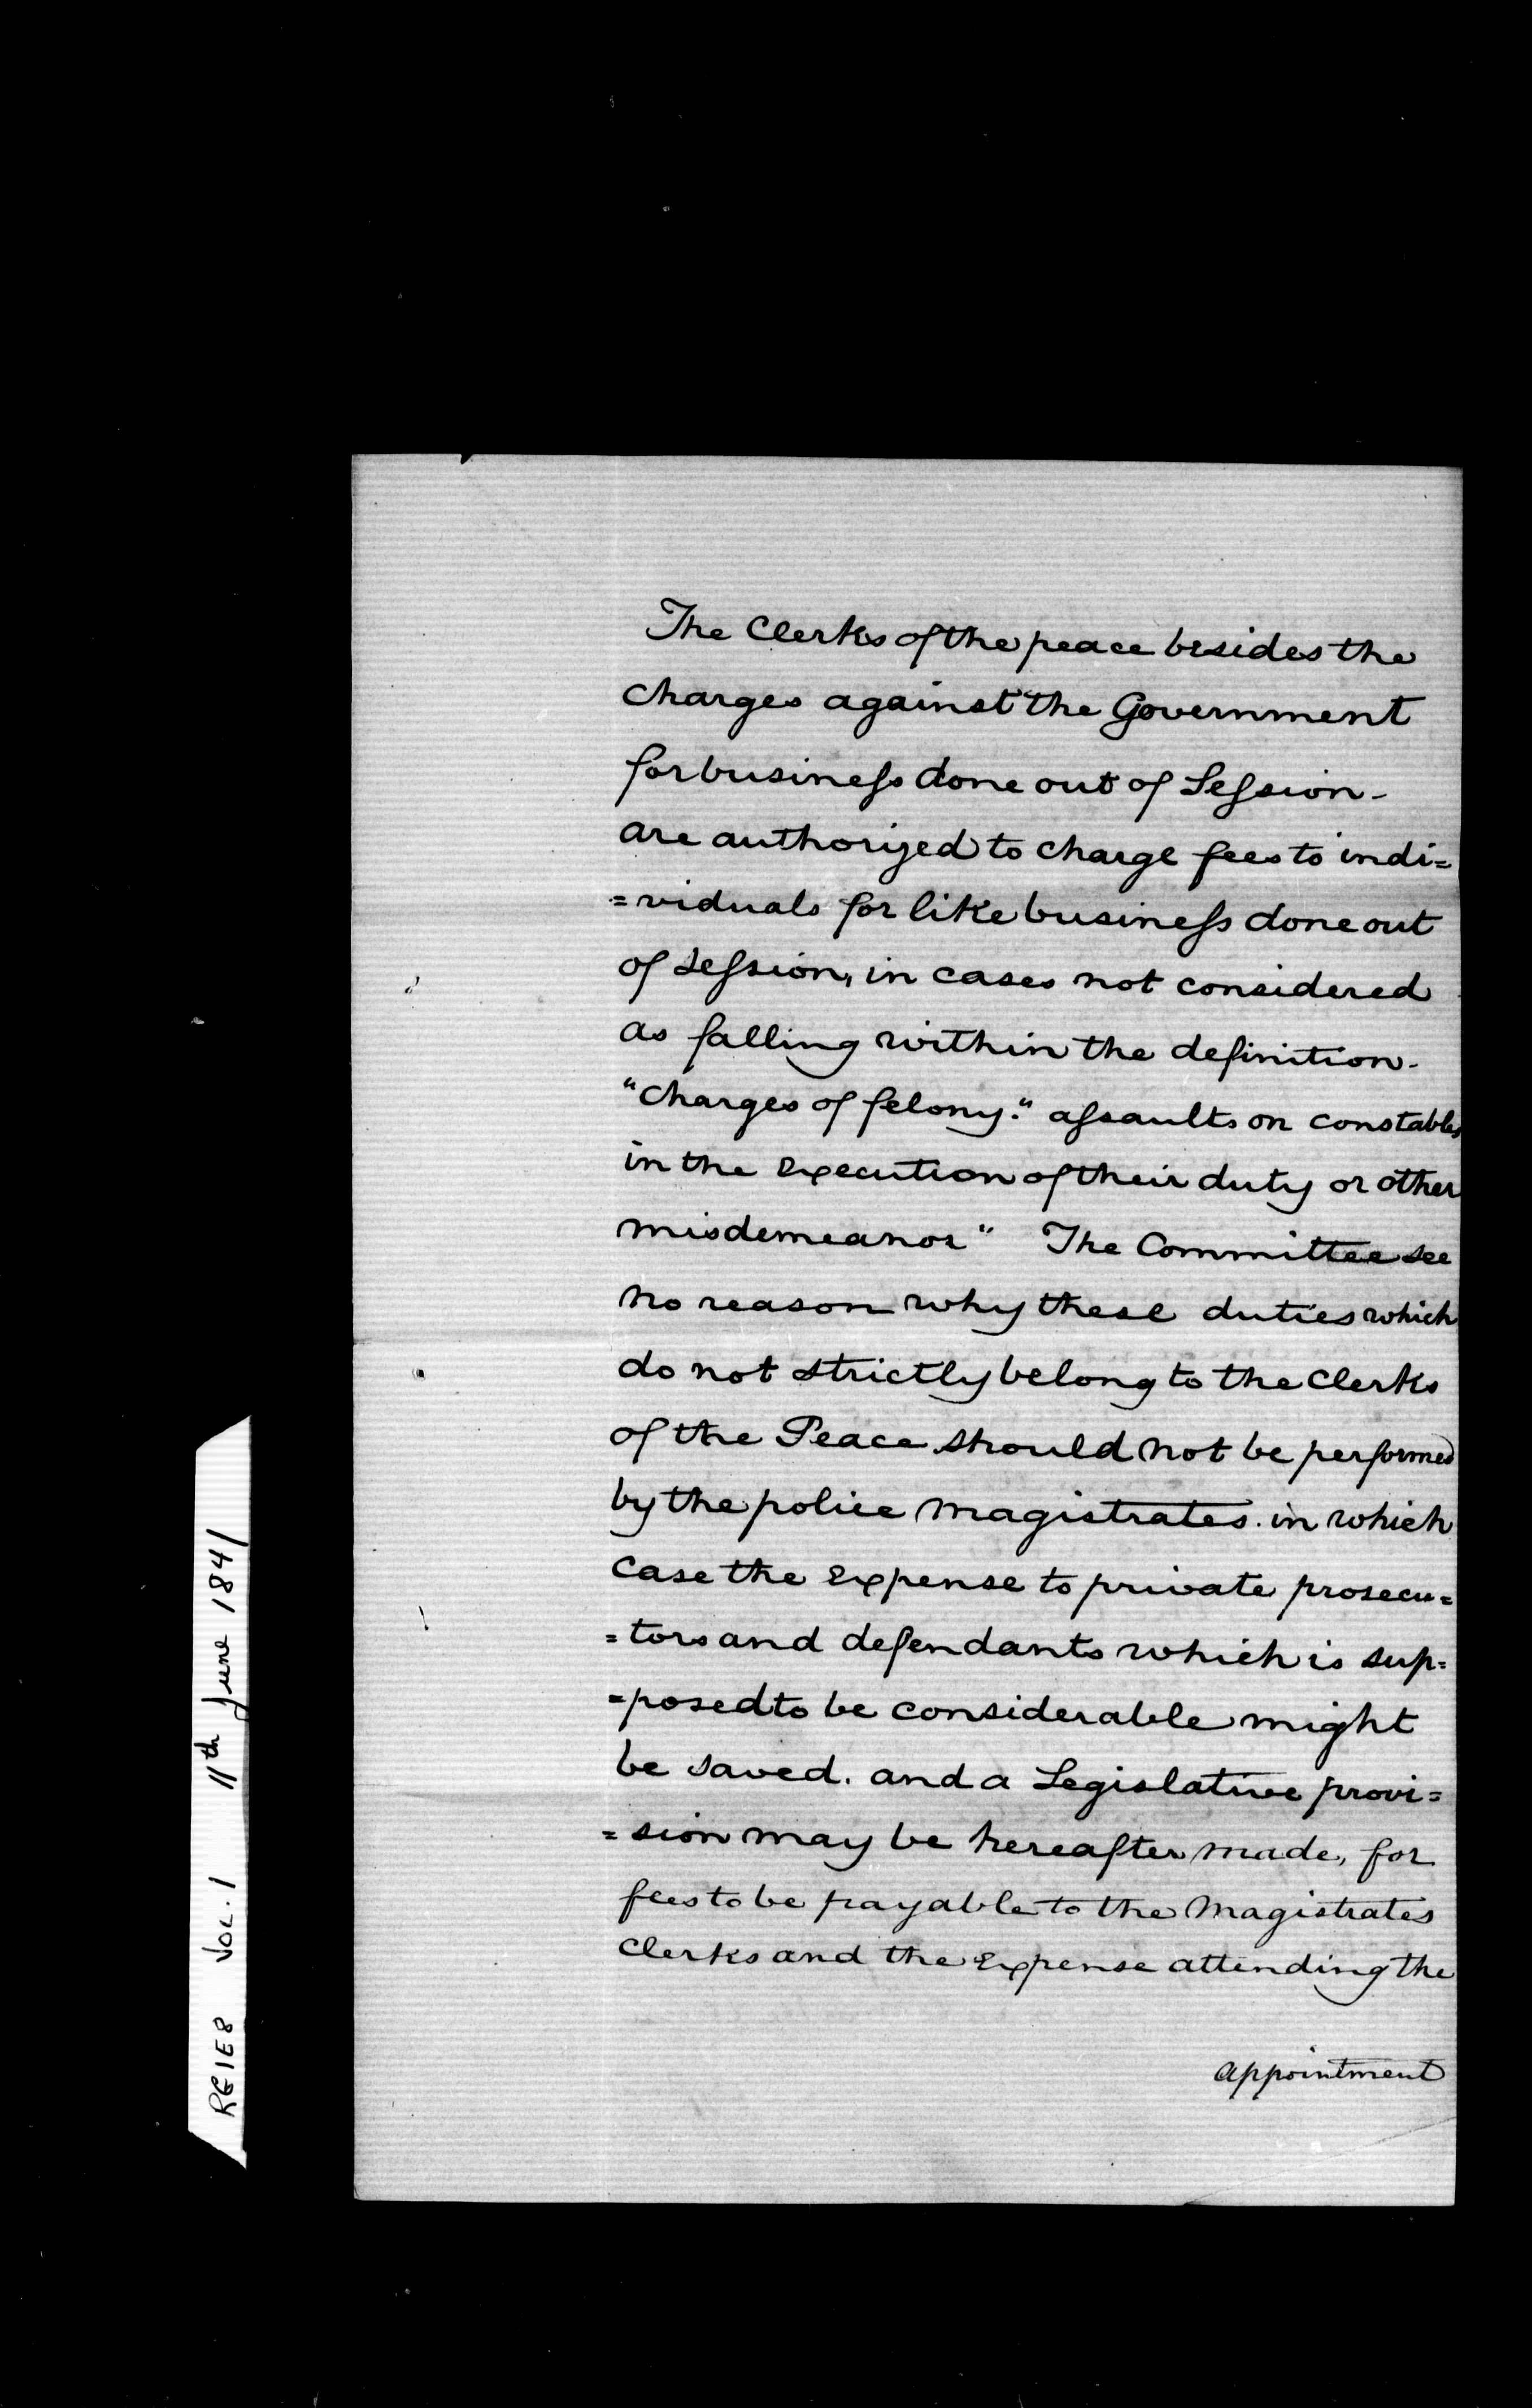 The Clerks of the peace besides the
charges against the Government
for business done out of Session -
are authorized to charge fees to indi=
=viduals for like business done out
of Session, in cases not considered
as falling within the definition -
"charges of felony." assaults on constables
in the execution of their duty or other
misdemeanor" The Committee see
no reason why these duties which
do not strictly belong to the Clerks
of the Peace should not be performed
by the police magistrates. in which
case the expense to private prosecu=
=tors and defendants which is sup=
=posed to be considerable might
be saved. and a Legislative provi=
=sion may be hereafter made, for
fees to be payable to the Magistrates
Clerks and the expense attending the
appointment
RG1E8 VOL. 1 11th June 1841